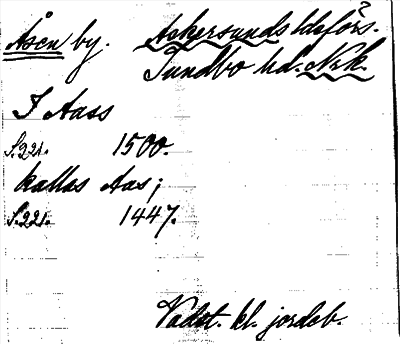 Åsen by. Askersunds ldsförs.
Sundbo hd. Nrk.
I Aass
S.221. 1500.
kallas Aas;
S.221. 1447.
Vadst. kl. jordeb.